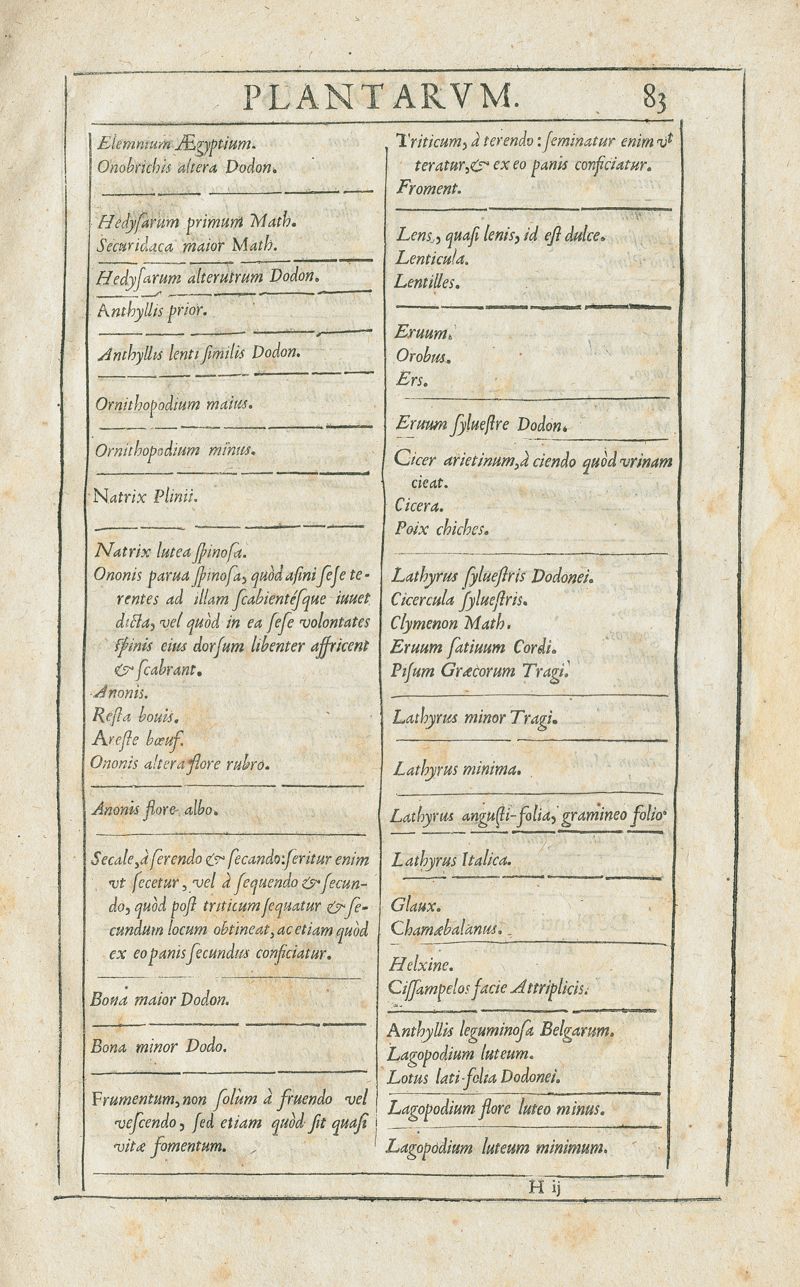 PLANTARVM.
83
Elemnium Ægyptium.
Onobrichis altera Dodon.
Hedyſarum primum Math.
Securidaca maior Math.
Hedyſarum alterutrum Dodon.
Anthyllis prior.
Anthyllis lenti ſimilis Dodon.
Ornithopodium maius.
Ornithopodium minus.
Natrix Plinii.
Natrix lutea ſpinoſa.
Ononis parua ſpinoſa, quòd aſini ſeſe te-
rentes ad illam ſcabientéſque iuuet
dicta, vel quòd in ea ſeſe volontates
ſpinis eius dorſum libenter affricent
& ſcabrant.
Anonis.
Reſta bouis.
Areſte bœuf.
Ononis altera flore rubro.
Anonis flore albo.
Secale, à ſerendo & ſecando: ſeritur enim
vt ſecetur, vel à ſequendo & ſecun-
do, quòd poſt triticum ſequatur & ſe-
cundum locum obtineat, ac etiam quòd
ex eo panis ſecundus conficiatur.
Bona maior Dodon.
Bona minor Dodo.
Frumentum, non ſolùm à fruendo vel
veſcendo, ſed etiam quòd ſit quaſi
vitæ fomentum.
Triticum, à terendo: ſeminatur enim vt
teratur, & ex eo panis conficiatur.
Froment.
Lens, quaſi lenis, id eſt dulce.
Lenticula.
Lentilles.
Eruum.
Orobus.
Ers.
Eruum ſylueſtre Dodon.
Cicer arietinum, à ciendo quòd vrinam
cieat.
Cicera.
Poix chiches.
Lathyrus ſylueſtris Dodonei.
Cicercula ſylueſtris.
Clymenon Math.
Eruum ſatiuum Cordi.
Piſum Græcorum Tragi.
Lathyrus minor Tragi.
Lathyrus minima.
Lathyrus anguſti-folia, gramineo folio.
Lathyrus Italica.
Glaux.
Chamæbalanus.
Helxine.
Ciſſampelos facie Attriplicis.
Anthyllis leguminoſa Belgarum.
Lagopodium luteum.
Lotus lati-folia Dodonei.
Lagopodium flore luteo minus.
Lagopodium luteum minimum.
H ij